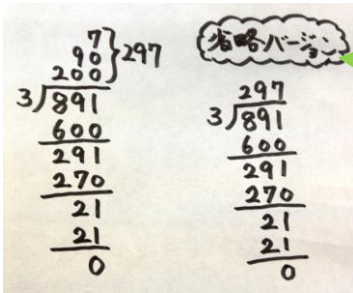 7
90 } 297
200
3)891
600
291
270
21
21
0
省略バージョン
297
3)891
600
291
270
21
21
0